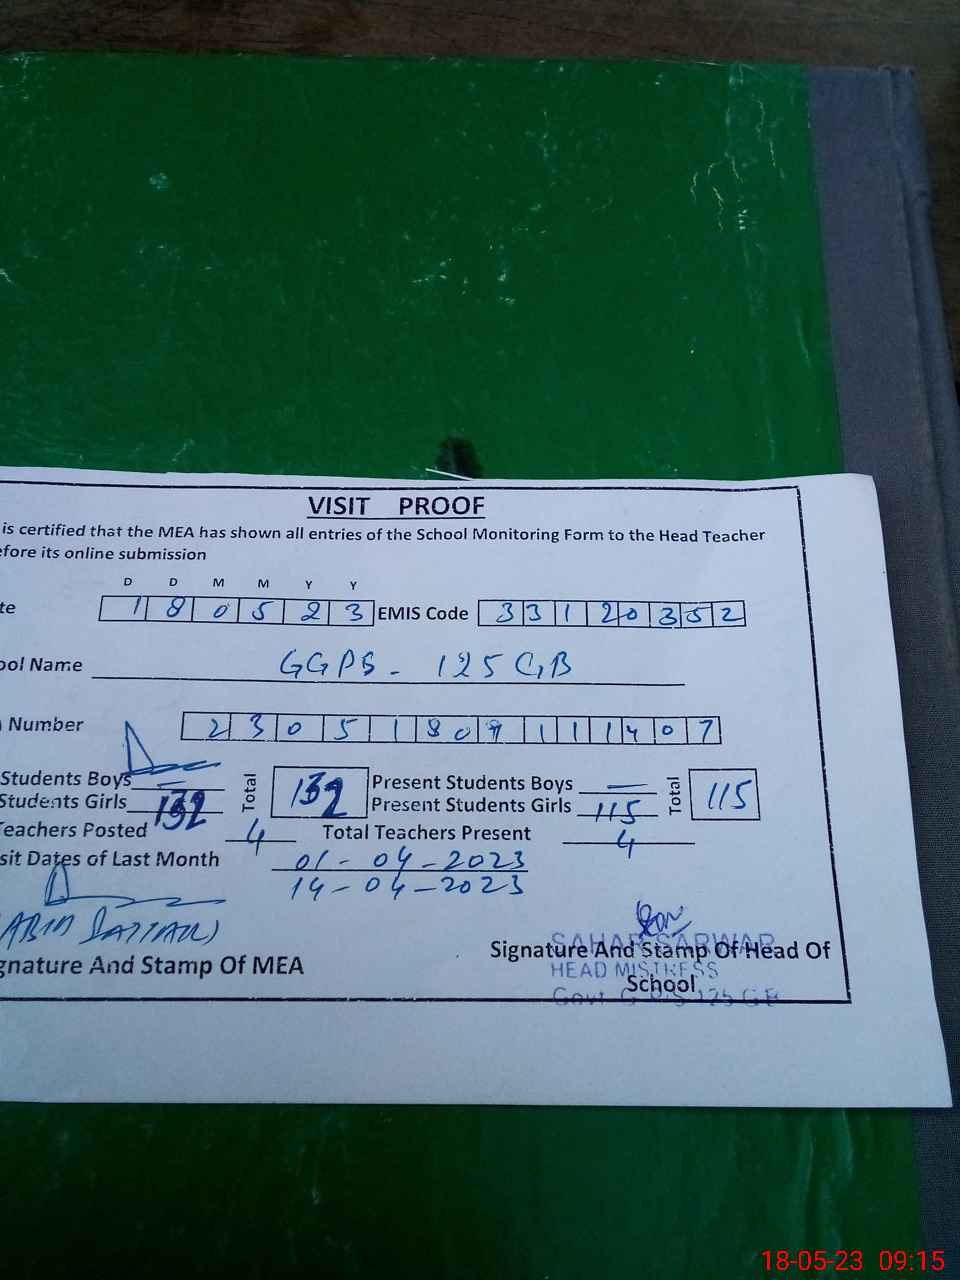 VISIT PROOF
is certified that the MEA has shown all entries of the School Monitoring Form to the Head Teacher
efore its online submission
D D M M Y Y
te 1 8 0 5 2 3 EMIS Code 3 3 1 2 0 3 5 2
ool Name GGPS - 125 GB
Number 2 3 0 5 1 8 0 9 1 1 1 4 0 7
Students Boys — Total 132 Present Students Boys — Total 115
Students Girls 132 Present Students Girls 115
Teachers Posted 4 Total Teachers Present 4
sit Dates of Last Month 01-04-2023
14-04-2023
SAHAR SARWAR
gnature And Stamp Of MEA Signature And Stamp Of Head Of
HEAD MISTRESS
School
Govt G P/S 125 GB
18-05-23 09:15